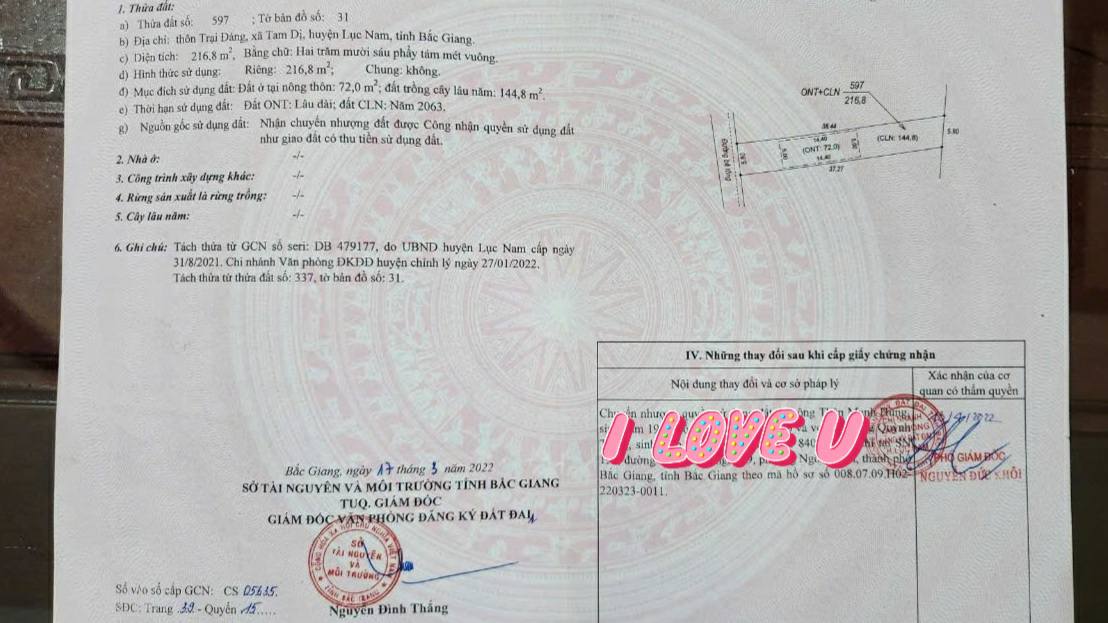 1. Thửa đất:
a) Thửa đất số: 597 ; Tờ bản đồ số: 31
b) Địa chỉ: thôn Trại Đáng, xã Tam Dị, huyện Lục Nam, tỉnh Bắc Giang.
c) Diện tích: 216,8 m², Bằng chữ: Hai trăm mười sáu phẩy tám mét vuông.
d) Hình thức sử dụng: Riêng: 216,8 m²; Chung: không.
đ) Mục đích sử dụng đất: Đất ở tại nông thôn: 72,0 m²; đất trồng cây lâu năm: 144,8 m².
e) Thời hạn sử dụng đất: Đất ONT: Lâu dài; đất CLN: Năm 2063.
g) Nguồn gốc sử dụng đất: Nhận chuyển nhượng đất được Công nhận quyền sử dụng đất
như giao đất có thu tiền sử dụng đất.
2. Nhà ở: -/-
3. Công trình xây dựng khác: -/-
4. Rừng sản xuất là rừng trồng: -/-
5. Cây lâu năm: -/-
6. Ghi chú: Tách thửa từ GCN số seri: DB 479177, do UBND huyện Lục Nam cấp ngày
31/8/2021. Chi nhánh Văn phòng ĐKĐĐ huyện chỉnh lý ngày 27/01/2022.
Tách thửa từ thửa đất số: 337, tờ bản đồ số: 31.
ONT+CLN 597
216,8
Đường bê tông
5.80
14.40
5.00
(ONT: 72.0)
5.00
14.40
37.27
(CLN: 144,8)
5.80
Bắc Giang, ngày 17 tháng 3 năm 2022
SỞ TÀI NGUYÊN VÀ MÔI TRƯỜNG TỈNH BẮC GIANG
TUQ. GIÁM ĐỐC
GIÁM ĐỐC VĂN PHÒNG ĐĂNG KÝ ĐẤT ĐAI
CỘNG HÒA XÃ HỘI CHỦ NGHĨA VIỆT NAM
SỞ
TÀI NGUYÊN
VÀ
MÔI TRƯỜNG
TỈNH BẮC GIANG
Nguyễn Đình Thắng
Số vào sổ cấp GCN: CS 05635.
SĐC: Trang .39. - Quyển .15.....
IV. Những thay đổi sau khi cấp giấy chứng nhận
Nội dung thay đổi và cơ sở pháp lý
Xác nhận của cơ
quan có thẩm quyền
I LOVE U
đường
thành phố
Bắc Giang, tỉnh Bắc Giang theo mã hồ sơ số 008.07.09.H02-
220323-0011.
PHÓ GIÁM ĐỐC
NGUYỄN ĐỨC KHÔI